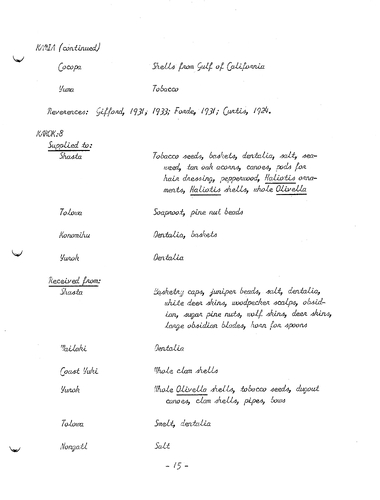 KAMIA (continued)
Cocopa Shells from Gulf of California
Yuma Tobacco
References: Gifford, 1931, 1933; Forde, 1931; Curtis, 1924.
KAROK:8
Supplied to:
Shasta Tobacco seeds, baskets, dentalia, salt, sea-
weed, tan oak acorns, canoes, pods for
hair dressing, pepperwood, Haliotis orna-
ments, Haliotis shells, whole Olivella
Tolowa Soaproot, pine nut beads
Konomihu Dentalia, baskets
Yurok Dentalia
Received from:
Shasta Basketry caps, juniper beads, salt, dentalia,
white deer skins, woodpecker scalps, obsid-
ian, sugar pine nuts, wolf skins, deer skins,
large obsidian blades, horn for spoons
Wailaki Dentalia
Coast Yuki Whole clam shells
Yurok Whole Olivella shells, tobacco seeds, dugout
canoes, clam shells, pipes, bows
Tolowa Smelt, dentalia
Nongatl Salt
- 15 -